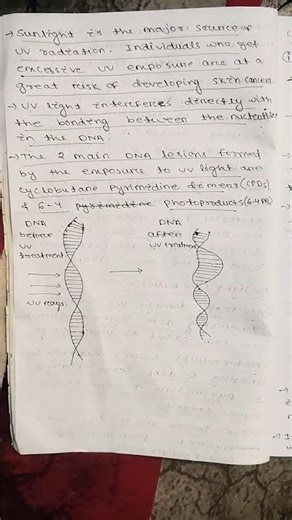 → Sunlight is the major source of
UV radiation. Individuals who get
excessive UV exposure are at a
great risk of developing skin cancer
→ UV light interferes directly with
the bonding between the nucleotides
in the DNA.
→ The 2 main DNA lesions formed
by the exposure to UV light are
cyclobutane Pyrimidine dimers (CPDs)
& 6-4 Pyrimidine photoproducts (6-4 PPs)
DNA
before
UV
treatment
UV rays.
DNA
after
UV treatment